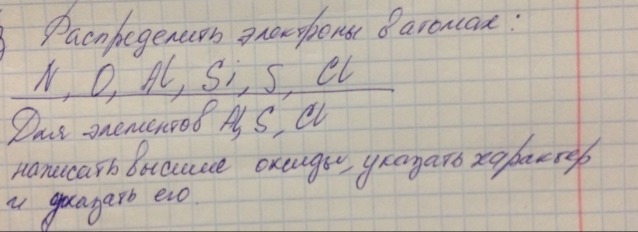 Распределить электроны в атомах:
N, O, Al, Si, S, Cl
Для элементов Al, S, Cl
написать высшие оксиды, указать характер
и указать его.